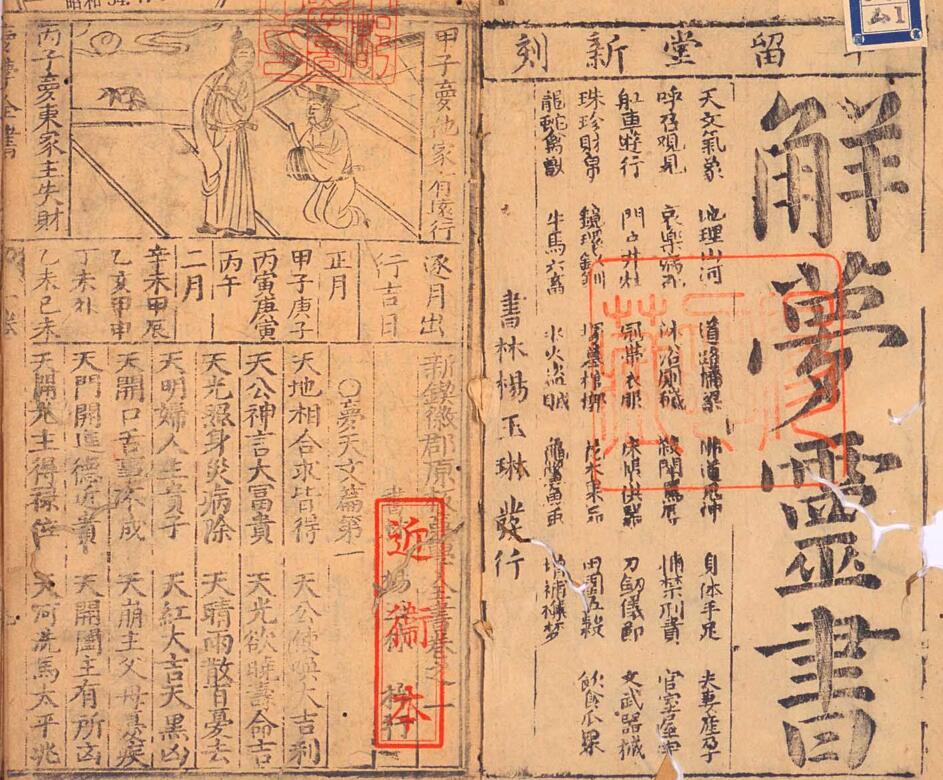 留堂新刻
解夢靈書
天文氣象 地理山河 道路橋梁 佛道鬼神 身体手足 夫妻產孕
呼召観見 哀樂病死 沐浴厠穢 捕禁刑責 官室屋宇
船車遊行 門戶井灶 冠帯衣服 床帳供器 刀劔儀節 文武器械
珠珍財帛 鏡環釵釧 塚墓棺槨 花木果品 田園五穀 飲食瓜果
龍蛇禽獸 牛馬六畜 水火盜賊 龜鱉魚虫 增補襍梦
書林楊玉琳發行
甲子夢他家有遠行
丙子夢東家主失財
逐月出
行吉日
正月
甲子庚子
丙寅庚寅
丙午
二月
辛未甲辰
乙亥甲申
丁未
乙未己未
新鍥徽郡原板夢學全書卷之一
書 楊 梓行
近衛本
○夢天文篇第一
天地相合求皆得 天公使喚大吉利
天公神言大富貴 天光欲曉壽命吉
天光照身災病除 天晴雨散百憂去
天明婦人生貴子 天紅大吉天黑凶
天開口舌事不成 天崩主父母憂疾
天門開進德近貴 天開闔主有所凶
天開光主得祿位 天河洗馬太平兆
夢學全書